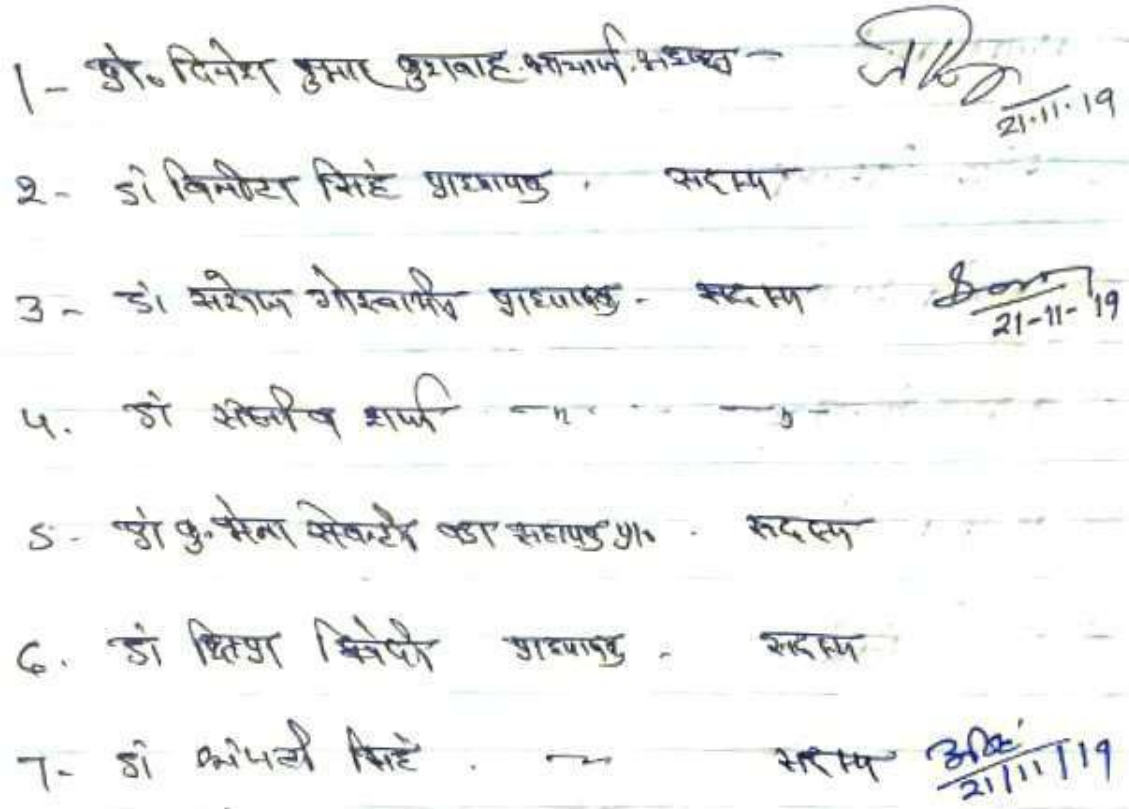 1- प्रो. दिनेश कुमार कुशवाह आचार्य. अध्यक्ष - 21.11.19
2- डॉ विनीता सिंह प्राध्यापक . सदस्य
3- डॉ सरोज गोस्वामी प्राध्यापक - सदस्य 21-11-19
4. डॉ संजीव शर्मा - " - - " -
5- डॉ कु. सहायक प्रा. सदस्य
6. डॉ क्षिप्रा द्विवेदी प्राध्यापक - सदस्य
7- डॉ सिंह . सदस्य 21/11/19